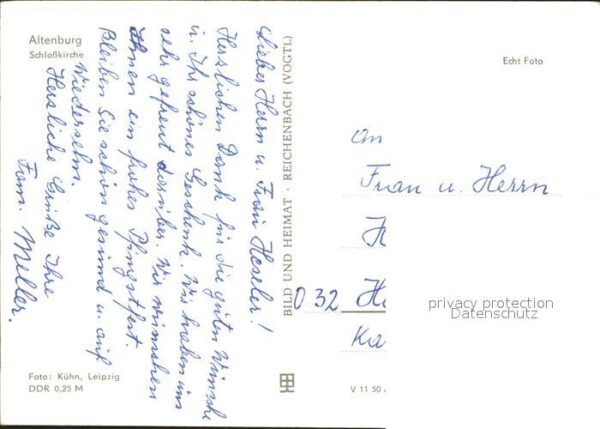 Altenburg
Schloßkirche
Lieber Herr u. Frau Hoseler!
Herzlichen Dank für die guten Wünsche
u. Ihr schönes Geschenk. Wir haben uns
sehr gefreut darüber. Wir wünschen
Ihnen ein frohes Pfingstfest.
Bleiben Sie schön gesund u. auf
Wiedersehn.
Herzliche Grüße Ihre
Fam. Meller.
Foto: Kühn, Leipzig
DDR 0,25 M
BILD UND HEIMAT · REICHENBACH (VOGTL)
Echt Foto
An
Frau u. Herrn
H
032 He
Ka
privacy protection
Datenschutz
V 11 50